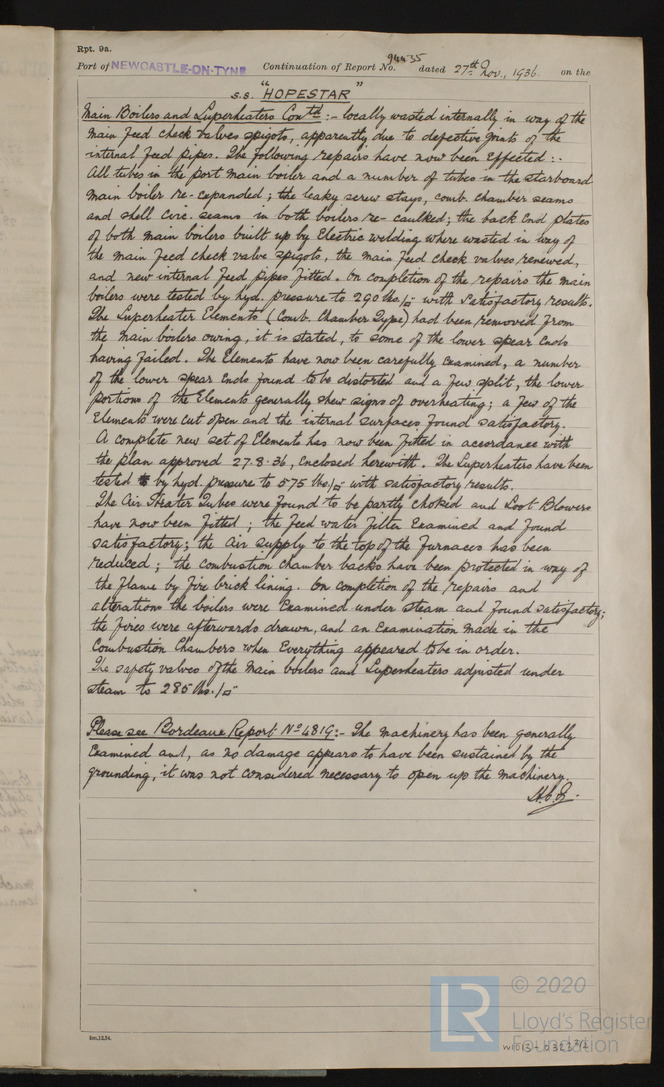 Rpt. 9a.
Port of NEWCASTLE-ON-TYNE Continuation of Report No. 94435 dated 27th Nov., 1936. on the
S.S. "HOPESTAR"
Main Boilers and Superheaters Contd :- locally wasted internally in way of the
main feed check valves spigots, apparently due to defective joints of the
internal feed pipes. The following repairs have now been effected :-
All tubes in the port main boiler and a number of tubes in the starboard
main boiler re-expanded ; the leaky screw stays, comb. chamber seams
and shell circ. seams in both boilers re-caulked; the back end plates
of both main boilers built up by Electric welding where wasted in way of
the main feed check valve spigots, the main feed check valves renewed,
and new internal feed pipes fitted. On completion of the repairs the main
boilers were tested by hyd. pressure to 290 lbs/□" with satisfactory results.
The Superheater Elements (Comb. Chamber Type) had been removed from
the main boilers owing, it is stated, to some of the lower spear ends
having failed. The Elements have now been carefully examined, a number
of the lower spear ends found to be distorted and a few split, the lower
portions of the Elements generally shew signs of overheating; a few of the
Elements were cut open and the internal surfaces found satisfactory.
A complete new set of Elements has now been fitted in accordance with
the plan approved 27.8.36, enclosed herewith. The Superheaters have been
tested by hyd. pressure to 575 lbs./□" with satisfactory results.
The Air Heater Tubes were found to be partly choked and Soot Blowers
have now been fitted ; the feed water filter examined and found
satisfactory; the air supply to the top of the furnaces has been
reduced ; the combustion chamber backs have been protected in way of
the flame by fire brick lining. On completion of the repairs and
alterations the boilers were examined under steam and found satisfactory;
the fires were afterwards drawn, and an examination made in the
Combustion Chambers when everything appeared to be in order.
The safety valves of the main boilers and Superheaters adjusted under
steam to 285 lbs./□"
Please see Bordeaux Report No 4819:- The machinery has been generally
examined and, as no damage appears to have been sustained by the
grounding, it was not considered necessary to open up the machinery.
5m,12,34.
© 2020
LR Lloyd's Register
Foundation
W1013-0323 2/2